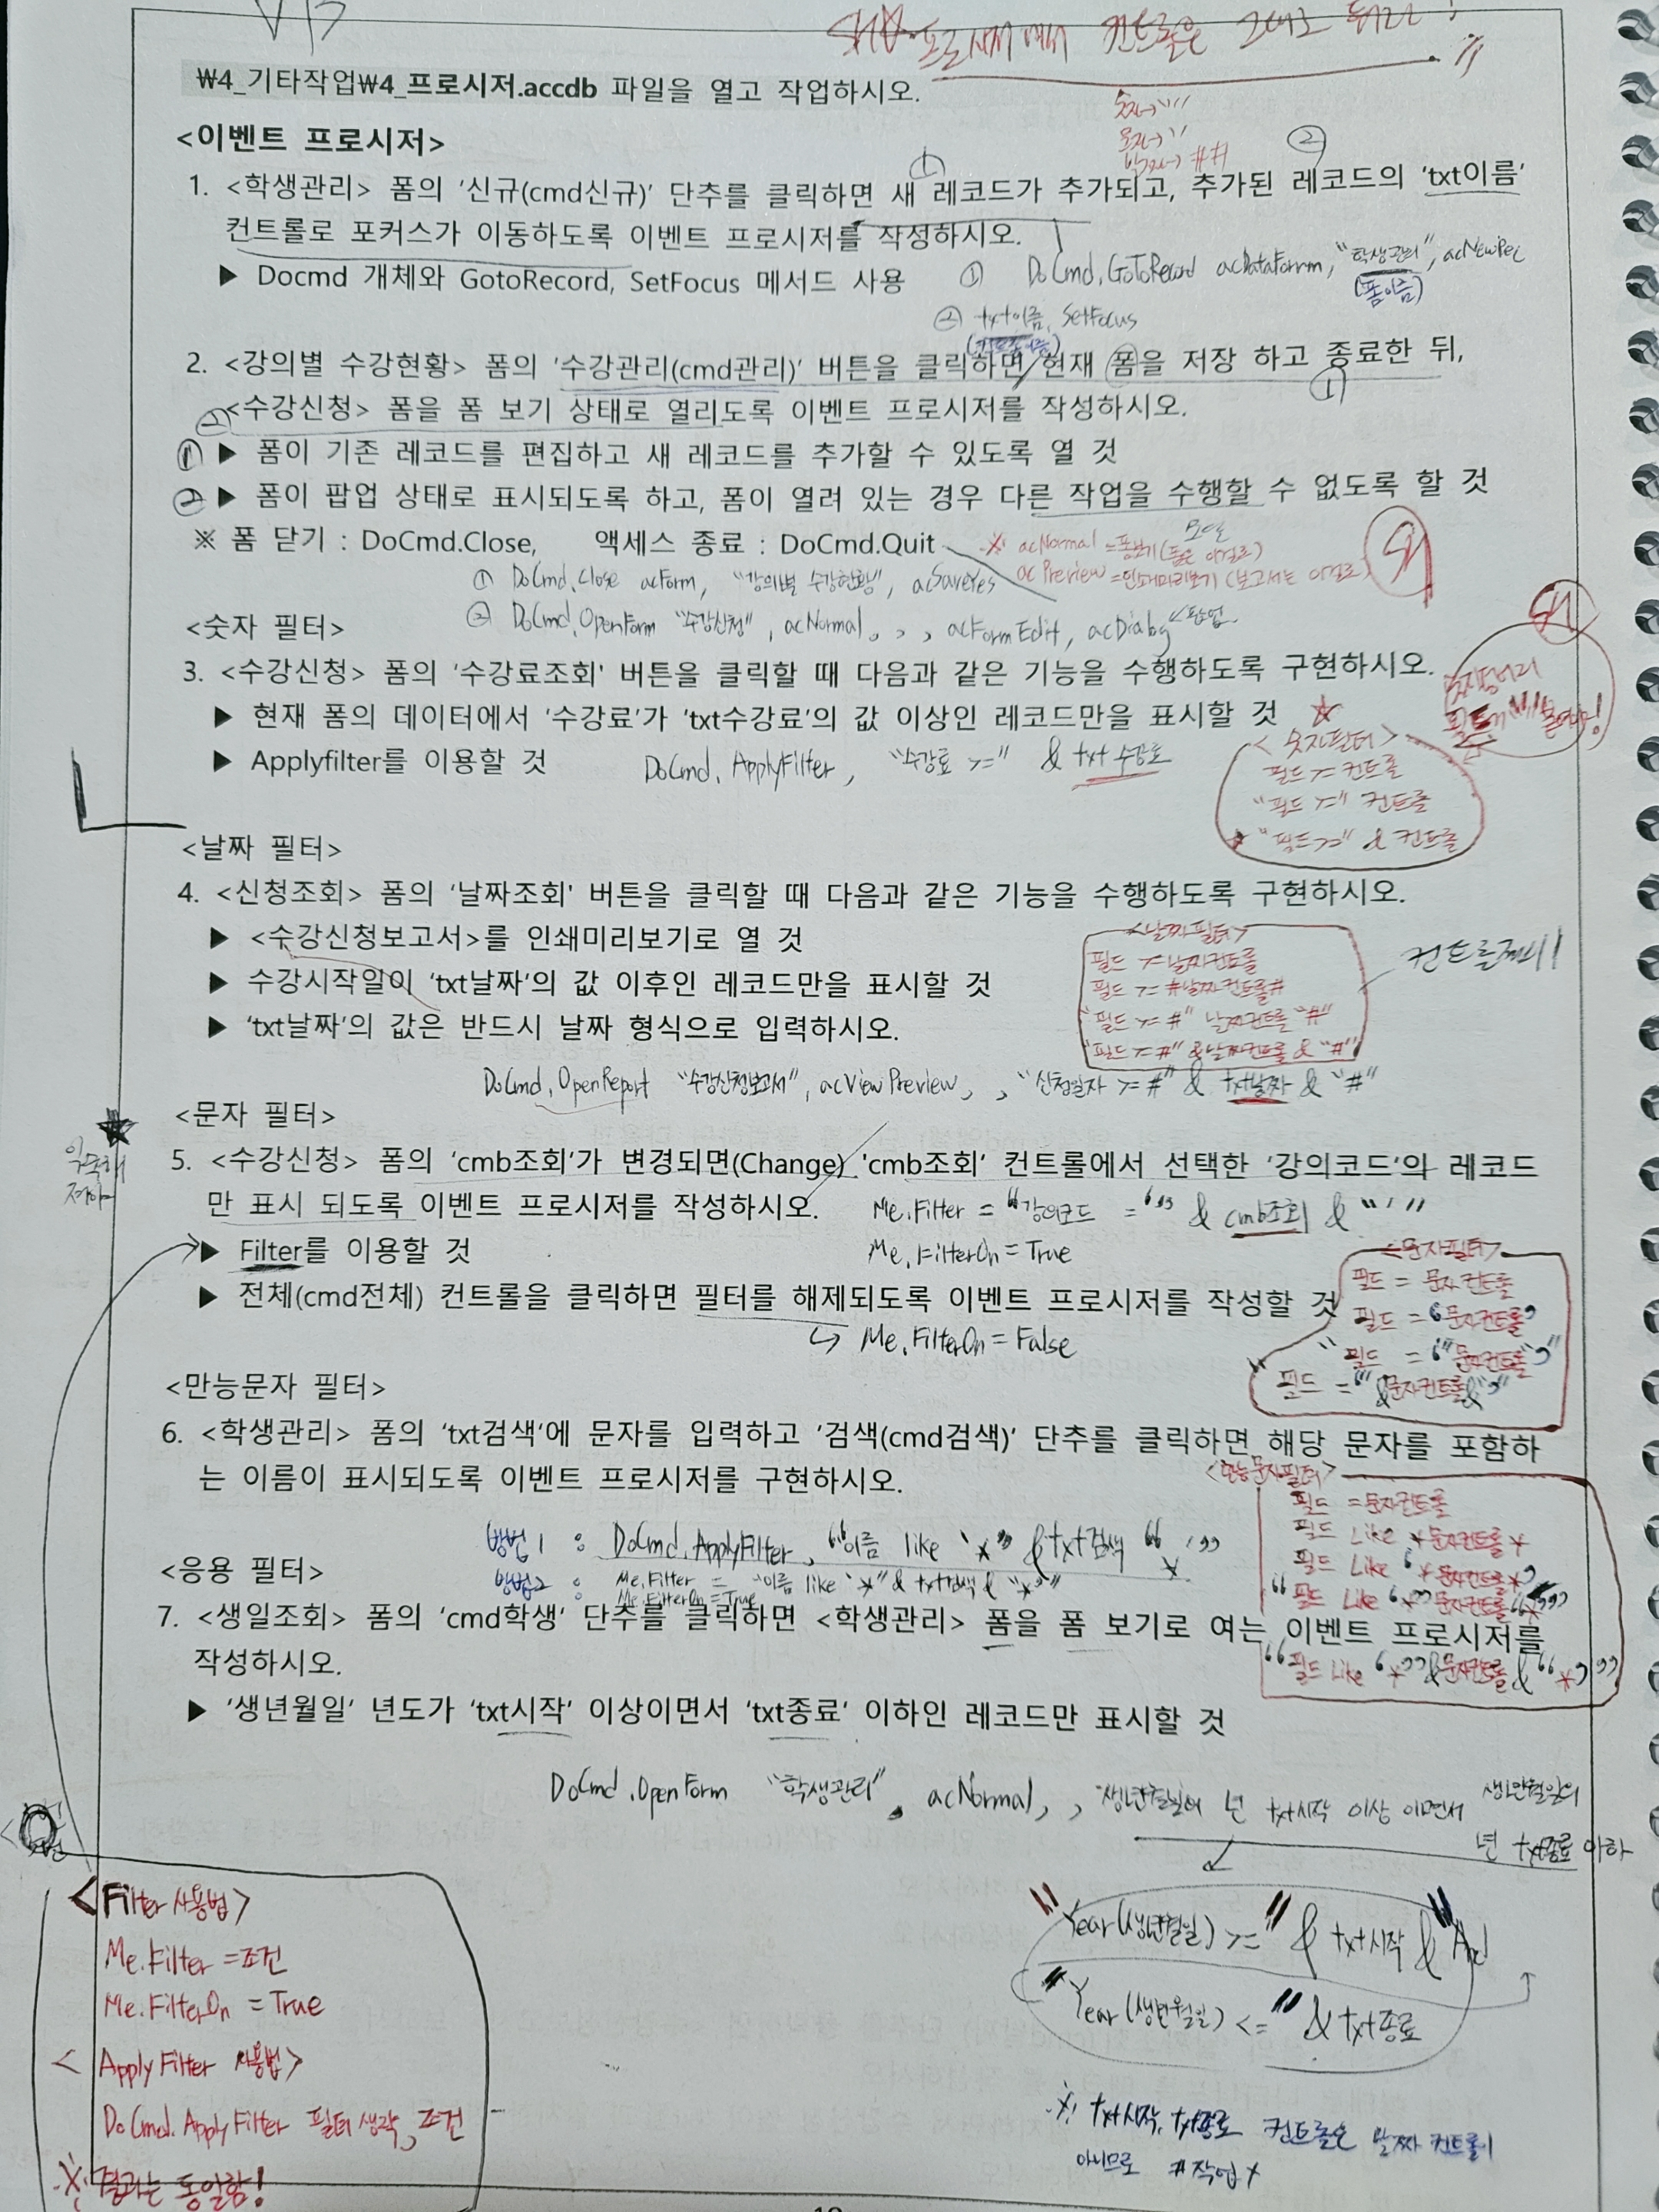 SN 프로시저에서 컨트롤은 그대로 둬라!
₩4_기타작업₩4_프로시저.accdb 파일을 열고 작업하시오.
숫자→""
문자→''
날짜→##
<이벤트 프로시저>
① ②
1. <학생관리> 폼의 '신규(cmd신규)' 단추를 클릭하면 새 레코드가 추가되고, 추가된 레코드의 'txt이름'
컨트롤로 포커스가 이동하도록 이벤트 프로시저를 작성하시오.
▶ Docmd 개체와 GotoRecord, SetFocus 메서드 사용
① DoCmd.GoToRecord acDataForm, "학생관리", acNewRec
(폼이름)
② txt이름.SetFocus
(컨트롤이름)
2. <강의별 수강현황> 폼의 '수강관리(cmd관리)' 버튼을 클릭하면 현재 폼을 저장 하고 종료한 뒤,
①
② <수강신청> 폼을 폼 보기 상태로 열리도록 이벤트 프로시저를 작성하시오.
① ▶ 폼이 기존 레코드를 편집하고 새 레코드를 추가할 수 있도록 열 것
② ▶ 폼이 팝업 상태로 표시되도록 하고, 폼이 열려 있는 경우 다른 작업을 수행할 수 없도록 할 것
※ 폼 닫기 : DoCmd.Close, 액세스 종료 : DoCmd.Quit
※ acNormal = 폼보기 (폼은 이걸로)
acPreview = 인쇄미리보기 (보고서는 이걸로)
SN
① DoCmd.Close acForm, "강의별 수강현황", acSaveYes
② DoCmd.OpenForm "수강신청", acNormal, , , acFormEdit, acDialog ←팝업
<숫자 필터>
SN
3. <수강신청> 폼의 '수강료조회' 버튼을 클릭할 때 다음과 같은 기능을 수행하도록 구현하시오.
▶ 현재 폼의 데이터에서 '수강료'가 'txt수강료'의 값 이상인 레코드만을 표시할 것
▶ Applyfilter를 이용할 것
DoCmd.ApplyFilter, "수강료 >=" & txt수강료
<숫자필터>
필드 >= 컨트롤
"필드 >=" 컨트롤
"필드 >=" & 컨트롤
<날짜 필터>
4. <신청조회> 폼의 '날짜조회' 버튼을 클릭할 때 다음과 같은 기능을 수행하도록 구현하시오.
▶ <수강신청보고서>를 인쇄미리보기로 열 것
▶ 수강시작일이 'txt날짜'의 값 이후인 레코드만을 표시할 것
▶ 'txt날짜'의 값은 반드시 날짜 형식으로 입력하시오.
<날짜필터>
필드 >= 날짜컨트롤
필드 >= #날짜컨트롤#
"필드 >= #" 날짜컨트롤 "#"
"필드 >= #" & 날짜컨트롤 & "#"
컨트롤제외!
DoCmd.OpenReport "수강신청보고서", acViewPreview, , "신청일자 >= #" & txt날짜 & "#"
<문자 필터>
★
익숙해
져야
5. <수강신청> 폼의 'cmb조회'가 변경되면(Change) 'cmb조회' 컨트롤에서 선택한 '강의코드'의 레코드
만 표시 되도록 이벤트 프로시저를 작성하시오.
Me.Filter = "강의코드 = '" & cmb조회 & "'"
Me.FilterOn = True
▶ Filter를 이용할 것
▶ 전체(cmd전체) 컨트롤을 클릭하면 필터를 해제되도록 이벤트 프로시저를 작성할 것
↳ Me.FilterOn = False
<문자필터>
필드 = 문자컨트롤
필드 = '문자컨트롤'
"필드 = '"문자컨트롤"'"
"필드 = '"&문자컨트롤&"'"
<만능문자 필터>
6. <학생관리> 폼의 'txt검색'에 문자를 입력하고 '검색(cmd검색)' 단추를 클릭하면 해당 문자를 포함하
는 이름이 표시되도록 이벤트 프로시저를 구현하시오.
<만능문자필터>
필드 = 문자컨트롤
필드 Like *문자컨트롤*
필드 Like '*문자컨트롤*'
"필드 Like '*"문자컨트롤"*'"
"필드 Like '*"&문자컨트롤&"*'"
방법1 : DoCmd.ApplyFilter, "이름 like '*" & txt검색 "*'"
방법2 : Me.Filter = "이름 like '*" & txt검색 & "*'"
Me.FilterOn = True
<응용 필터>
7. <생일조회> 폼의 'cmd학생' 단추를 클릭하면 <학생관리> 폼을 폼 보기로 여는 이벤트 프로시저를
작성하시오.
▶ '생년월일' 년도가 'txt시작' 이상이면서 'txt종료' 이하인 레코드만 표시할 것
DoCmd.OpenForm "학생관리", acNormal, , 생년월일의 년 txt시작 이상 이면서 생년월일의
년 txt종료 이하
"Year(생년월일) >=" & txt시작 & "And
"Year(생년월일) <=" & txt종료
※ txt시작, txt종료 컨트롤은 날짜 컨트롤이
아니므로 #작업X
<Filter 사용법>
Me.Filter = 조건
Me.FilterOn = True
<ApplyFilter 사용법>
DoCmd.ApplyFilter 필터생략, 조건
※ 결과는 동일함!